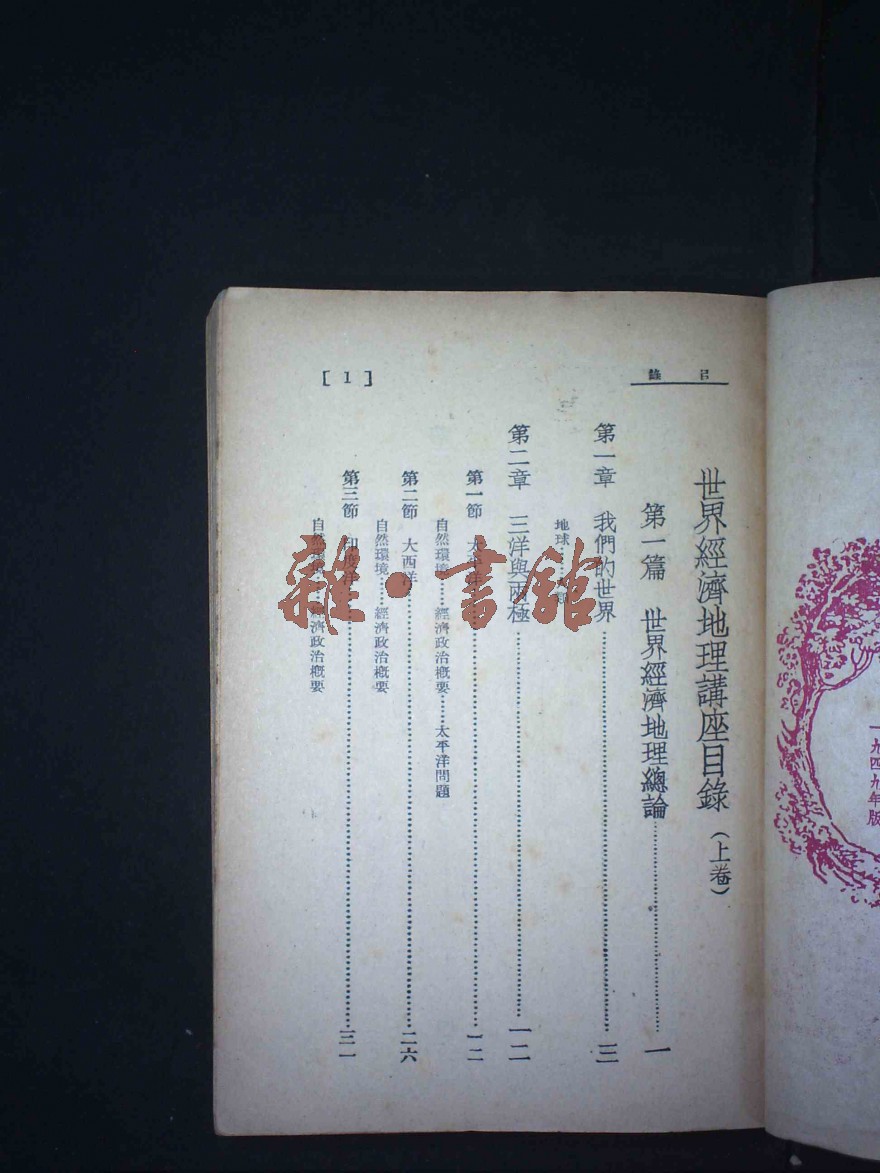 一九四九年版
目錄
世界經濟地理講座目錄（上卷）
第一篇 世界經濟地理總論……一
第一章 我們的世界……三
地球……
第二章 三洋與兩極……一二
第一節 太平洋……一二
自然環境……經濟政治概要……太平洋問題
第二節 大西洋……二六
自然環境……經濟政治概要
第三節 印度洋……三一
自然環境……經濟政治概要
[1]
雜·書館